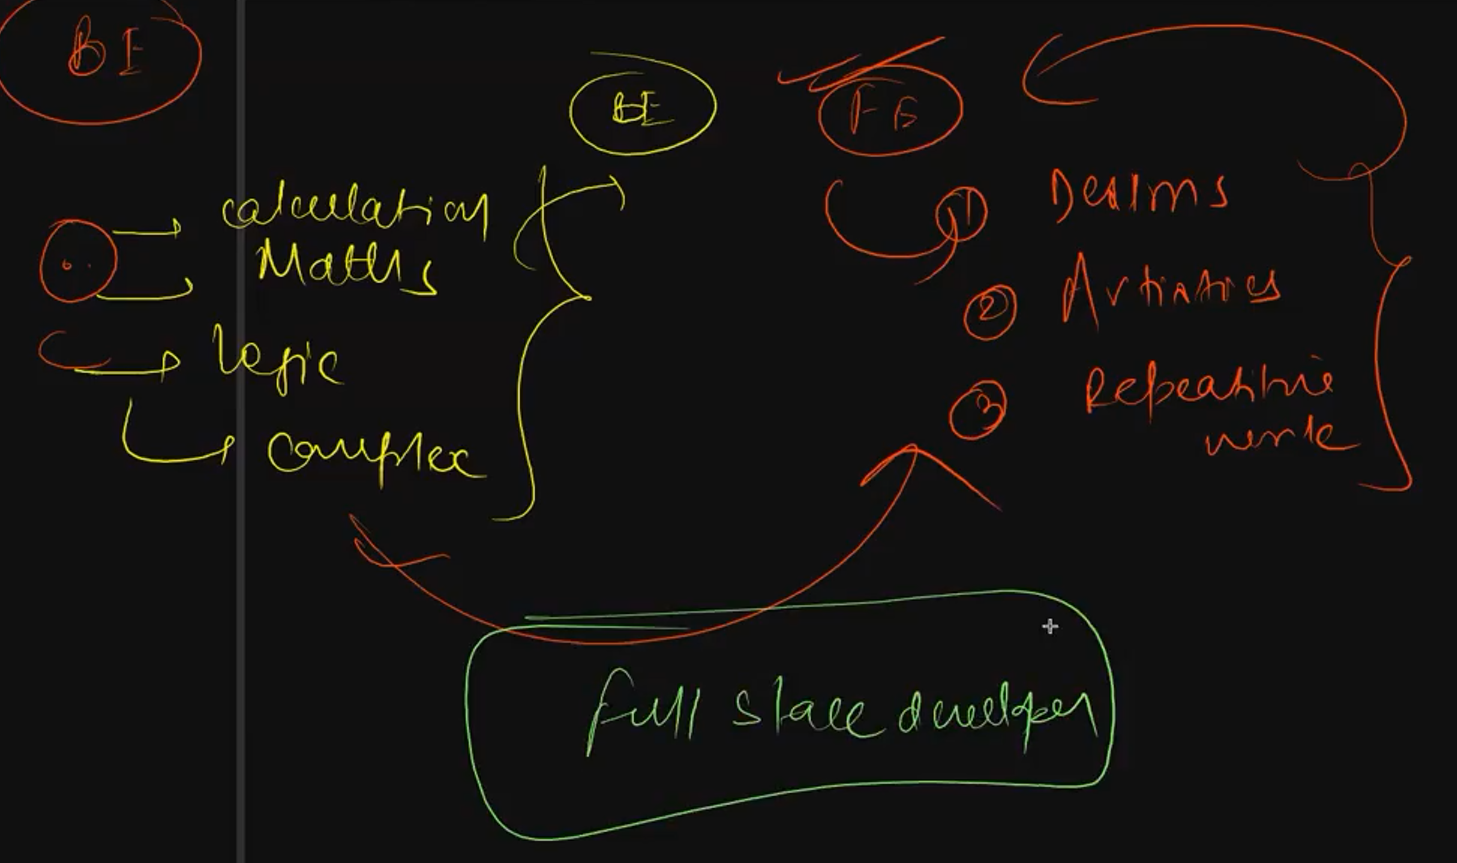 BE
BE
FE
calculation
Maths
logic
complex
1 Designs
2 Artistics
3 Repeatitive
work
full stack developer